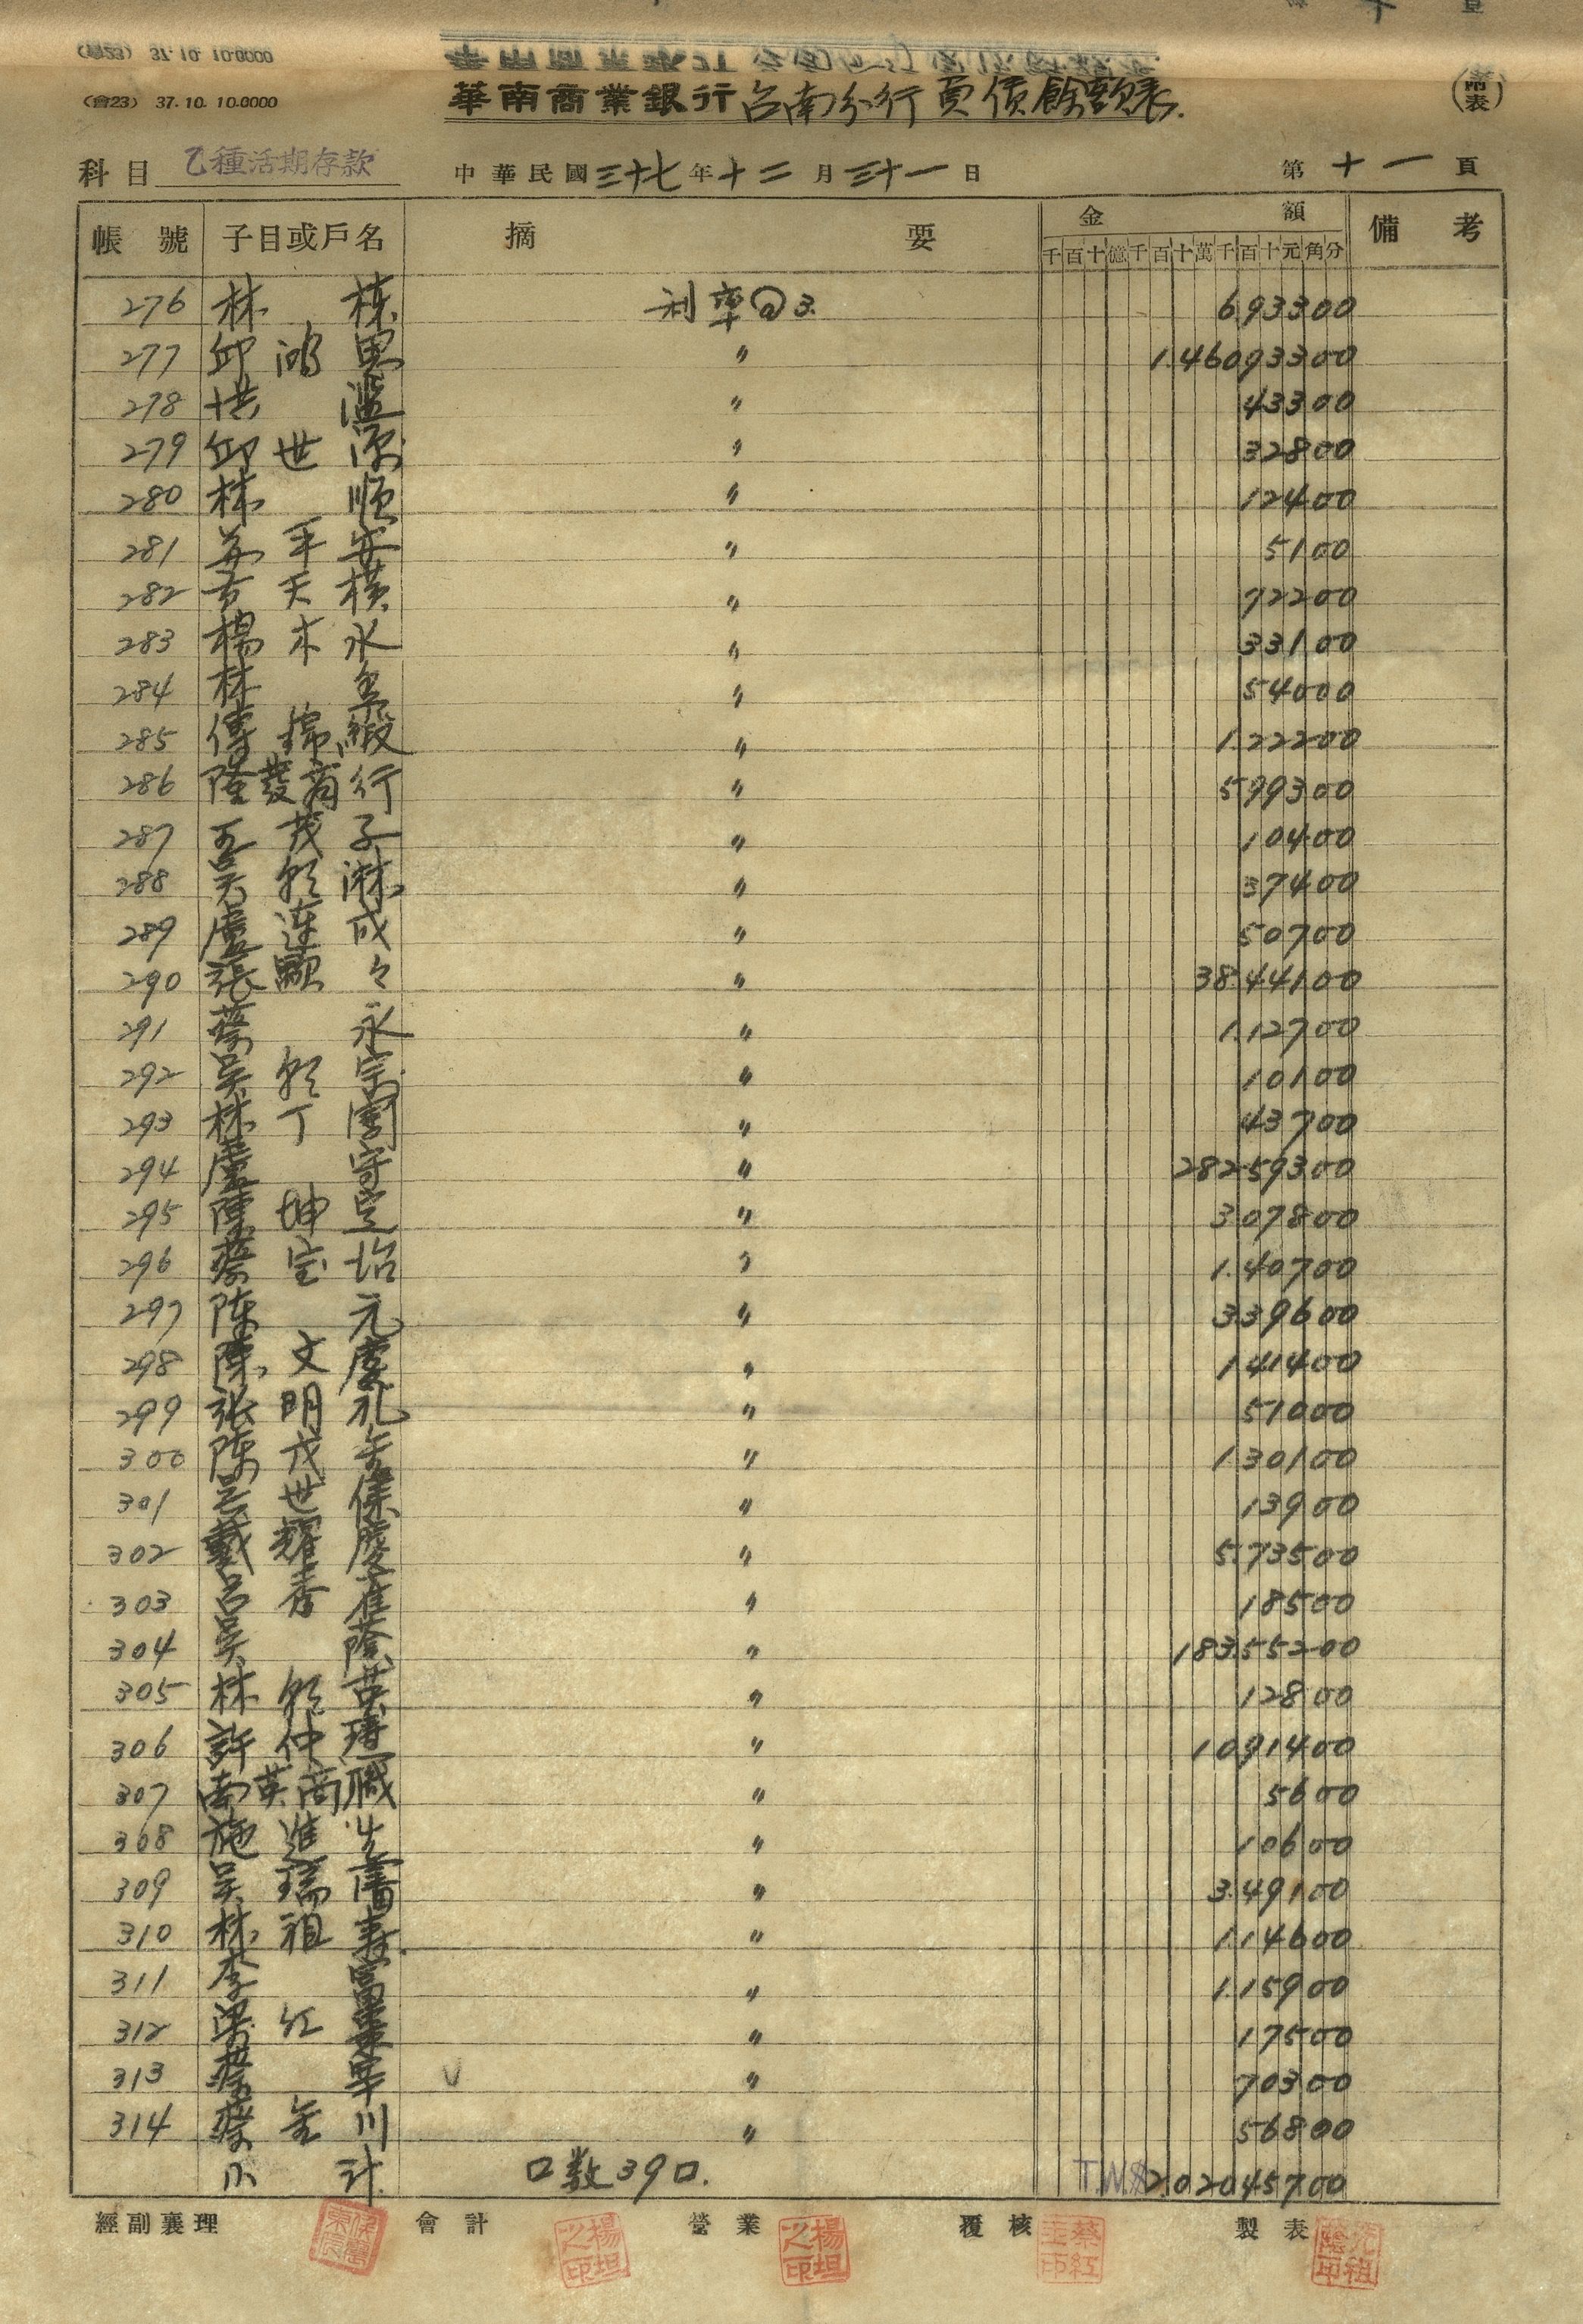 (會23) 37.10. 10.0000
華南商業銀行台南分行負債餘額表.
(附表)
科目 乙種活期存款 中華民國三十七年十二月三十一日 第十一頁
帳號 子目或戶名 摘要 金額 備考
千百十億千百十萬千百十元角分
276 林 棟 利率@3. 6.93300
277 邱鴻恩 〃 1.46093300
278 洪 㴜 〃 43300
279 邱世源 〃 32800
280 林 順 〃 12400
281 平安 〃 5100
282 方天横 〃 72200
283 楊木水 〃 33100
284 林 〃 54000
285 傅錦緞 〃 1.22200
286 隆發商行 〃 5.99300
287 王茂子 〃 10400
288 吴淋 〃 37400
289 盧連成 〃 50700
290 張顯々 〃 38.44100
291 蔡 永 〃 1.12700
292 吴宗 〃 10100
293 林丁 〃 43700
294 盧 守 〃 282.59300
295 陳坤定 〃 3.07800
296 蔡宝治 〃 1.40700
297 陈 元 〃 3.39600
298 陳文慶 〃 1.41400
299 张明礼 〃 51000
300 陈戊 〃 1.30100
301 吴世傑 〃 13900
302 戴輝慶 〃 5.73500
303 呂春雀 〃 18500
304 吴 蔭 〃 183.55200
305 林英 〃 12800
306 許仲 〃 10.91400
307 南英商職 〃 5600
308 施進 〃 10600
309 吴瑞 〃 3.49100
310 林祖寿 〃 1.14600
311 李 富 〃 1.15900
312 梁红 〃 17500
313 蔡 √ 〃 70300
314 蔡金川 〃 56800
小計 口数39口. T.W.$2.020.45700
經副襄理 會計 營業 覆核 製表
楊坦之印 楊坦之印 蔡紅圭印